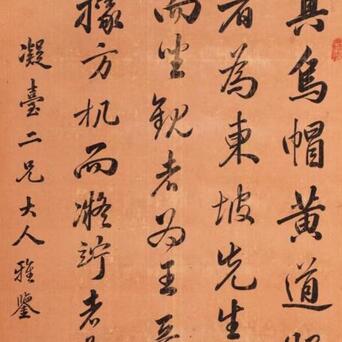 其烏帽黃道服
者為東坡先生
而坐觀者為王晉
據方机而凝竚者
凝臺二兄大人雅鑒